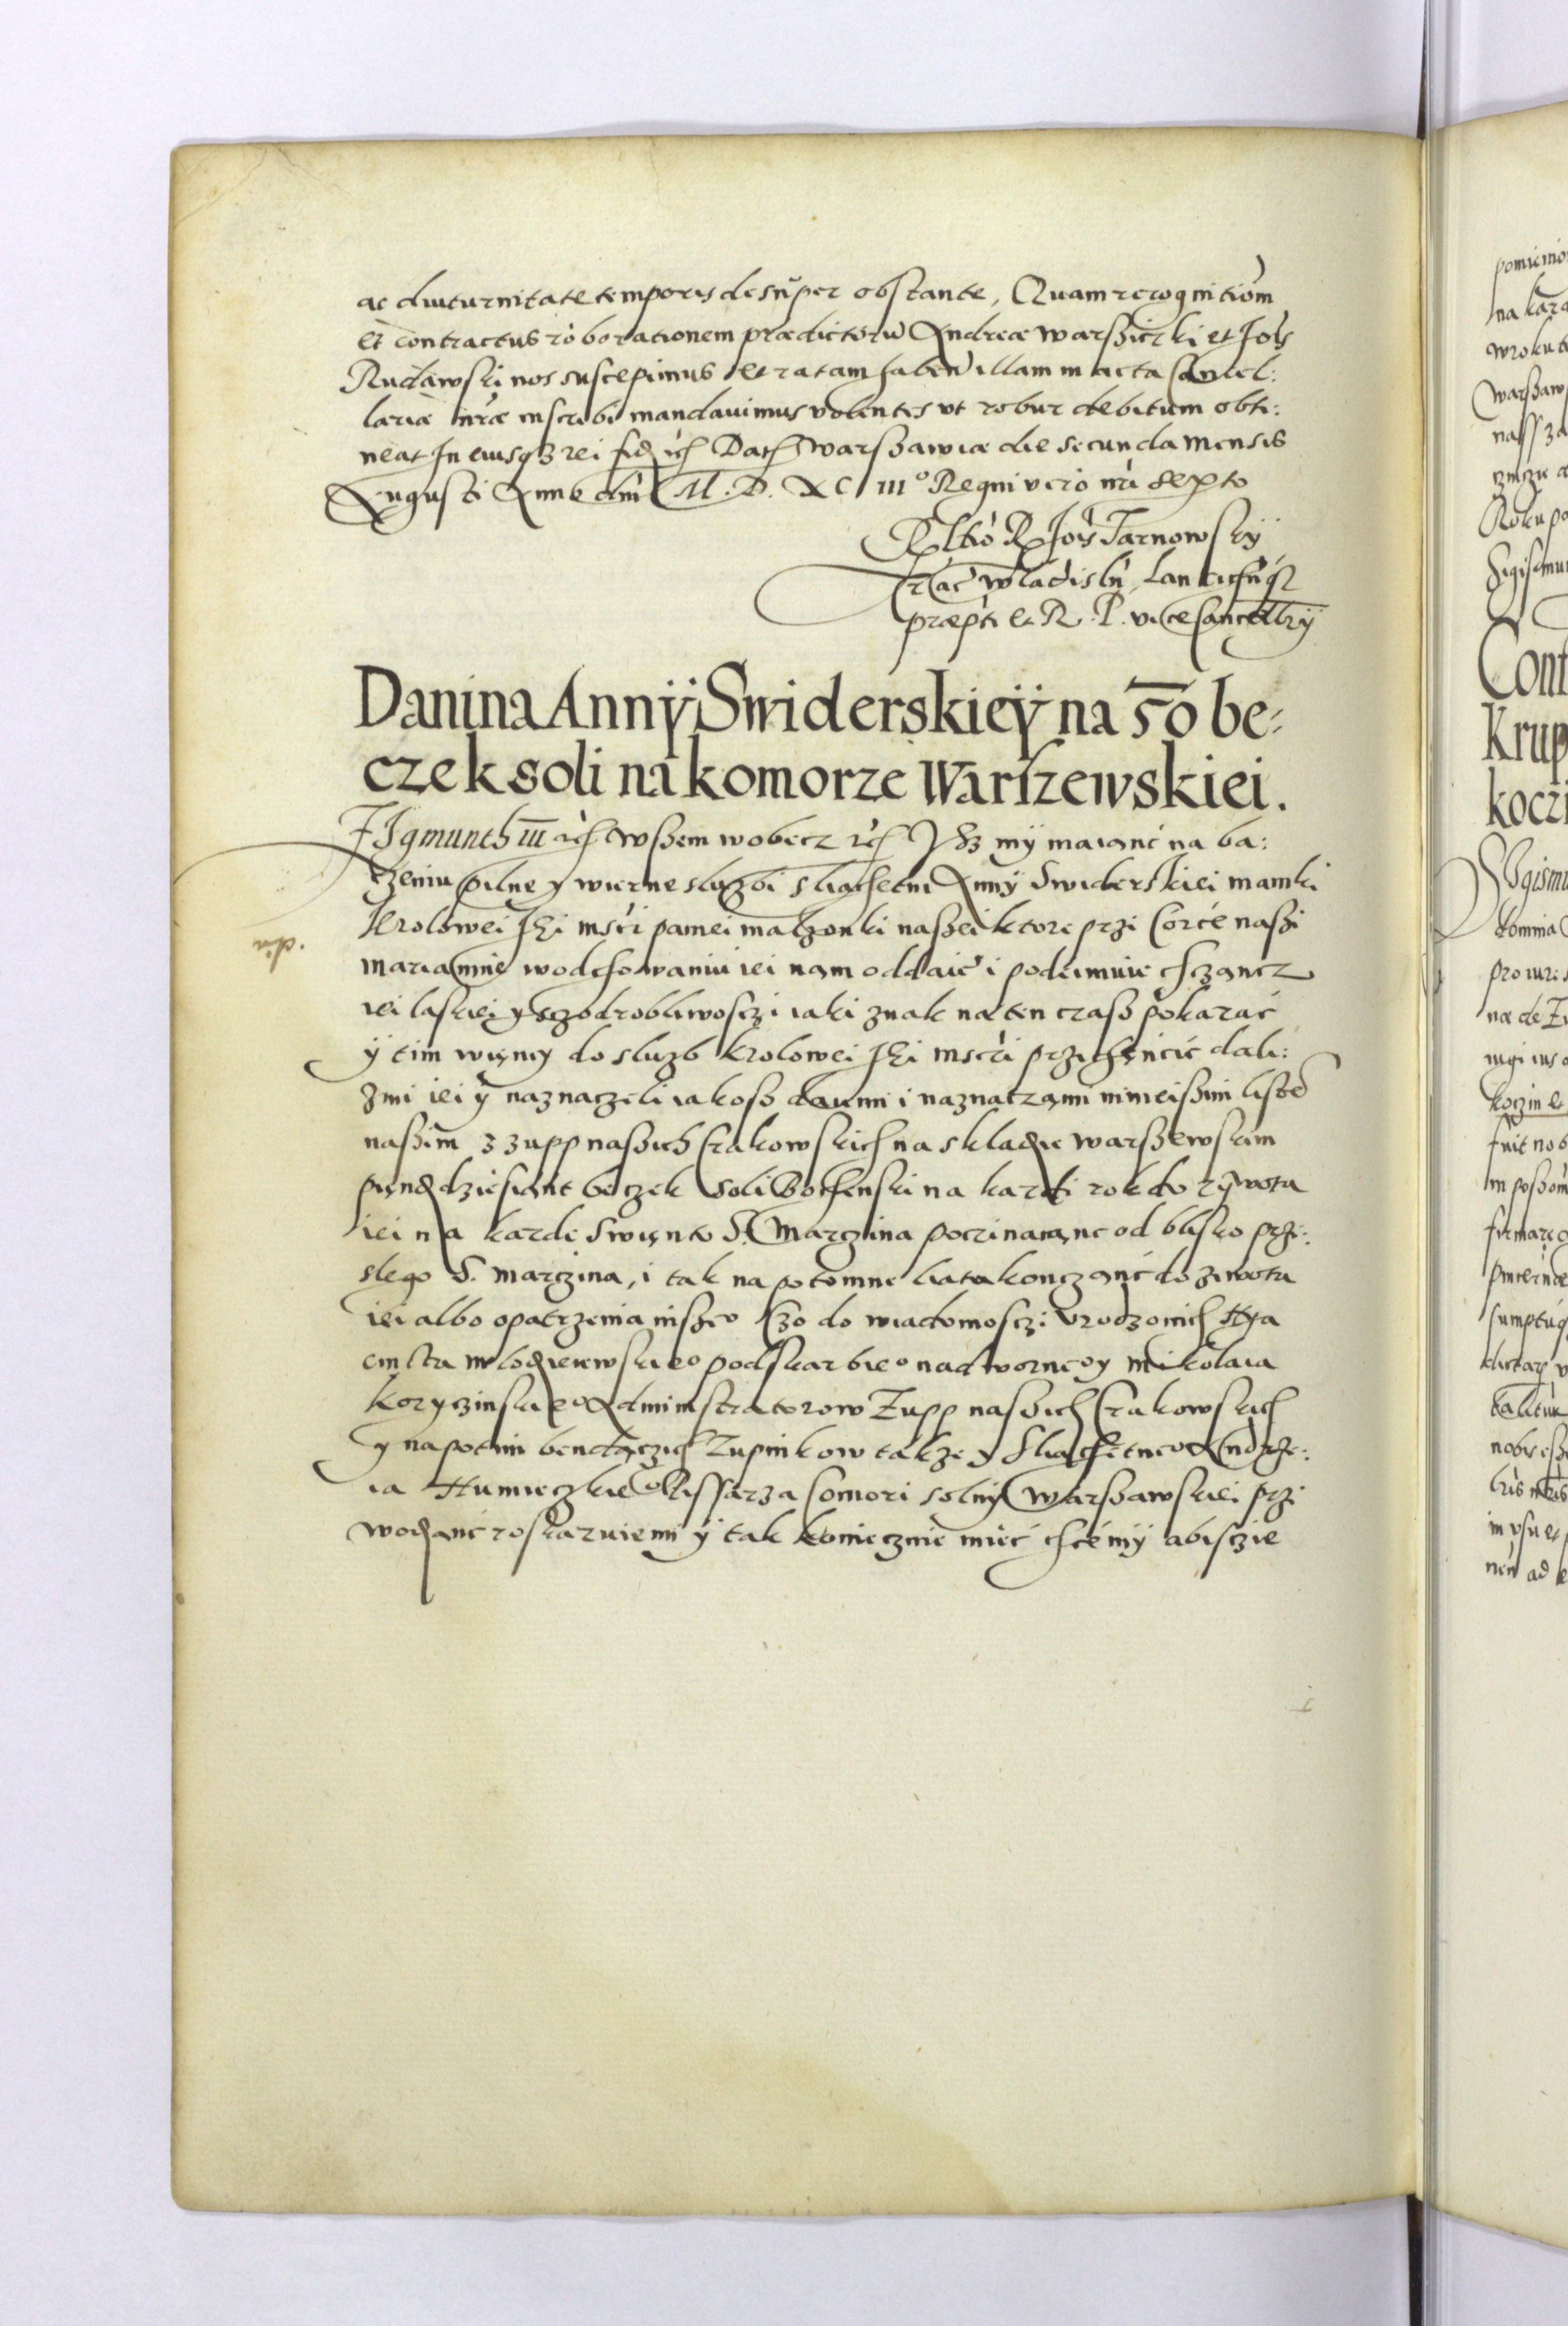 ac diuturnitate temporis desuper obstante, Quam recognitiom
et contractus roborationem prædictorũ Andreæ Warßicki et Jois
Rudawski nos suscepimus et ratam haben illam in acta Cancel:
lariæ nræ inscribi mandauimus volentes vt robur debitum obti:
neat In cuiusqz rei fid etc Dat Warßawiæ die secunda mensis
Augusti Anno dni M. D. XC iiio Regni vero nri sexto
Rltio R Jois Tarnowskÿ
Crac Wladislũ Lancicñqz
præpti et R. P. viceCancellrÿ
Danina Annÿ Swiderskieÿ na 50 be:
czek soli na komorze Warszewskiei.
ZIgmunth iii etc wßem wobecz etc Jß mÿ maianc na ba:
czeniu pilne y wierne sluzbi sliachetni Annÿ Swiderskiei mamki
Krolowei Jhi mści paniei malzonki naßei ktore przi Corce naßi
mariamnie wodchowaniu iei nam oddaie i podeimuie chczancz
iei laskiei y sczodrobliwosczi iaki znak na ten czasß pokazac
ÿ tim więncy do sluzb krolowei Jhi mscri przichęncic dali:
zmi iei y naznaczeli iakoß daiemi i naznaczami ninieißim listẽ
naßim z zupp naßich Crakowskich na skladie warßewskim
pięnddziesiant beczek soli Bochenski na kazdi rok do zÿwota
iei na kazde Swięnto S. Marczina poczinaianc od blisko prze:
slego S. marczina, i tak na potomne liata konczanc do ziwota
iei albo opatrzenia inßeo Czo do wiadomosczi vrodzonich Hya
cinta mlodieiewskieo podskarbieo nadworneo y mikolaia
koryczinskieo Administratorow Zupp naßich Crakowskich
y napotim bendączich Zupnikow takze y Sliachetneo Andrze:
ia Humieczkieo Pissarza Comori solnÿ Warßawskiei przi
wodzanc roskazuiemi ÿ tak koniecznie miec chcemÿ abisczie